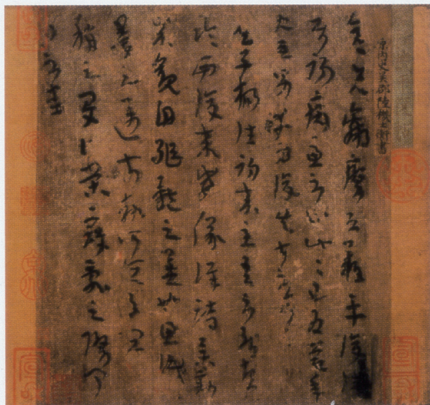 內史吳郡陸機士衡書
彦先羸瘵恐難平復往屬
初病慮不止此此已為慶承
使唯男幸為復失前憂耳
吳子楊往初來主吾不能盡
臨西復來威儀詳跱舉動
成觀自軀體之美也思識
量之邁前執所恒有宜
稱之夏伯榮寇亂之際聞
問不悉